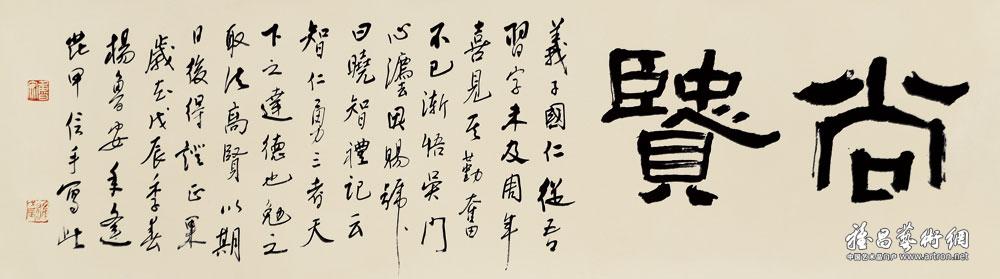 尚賢
義子國仁從吾
習字未及周年
喜見其勤奮
不已漸悟吳門
心灋因賜號
曰曉智禮記云
智仁勇三者天
下之達德也勉之
取法高賢以期
日後得證正果
歲在戊辰季春
楊魯安年逢
花甲信手寫此
雅昌藝術網
中国艺术品门户 www.artron.net